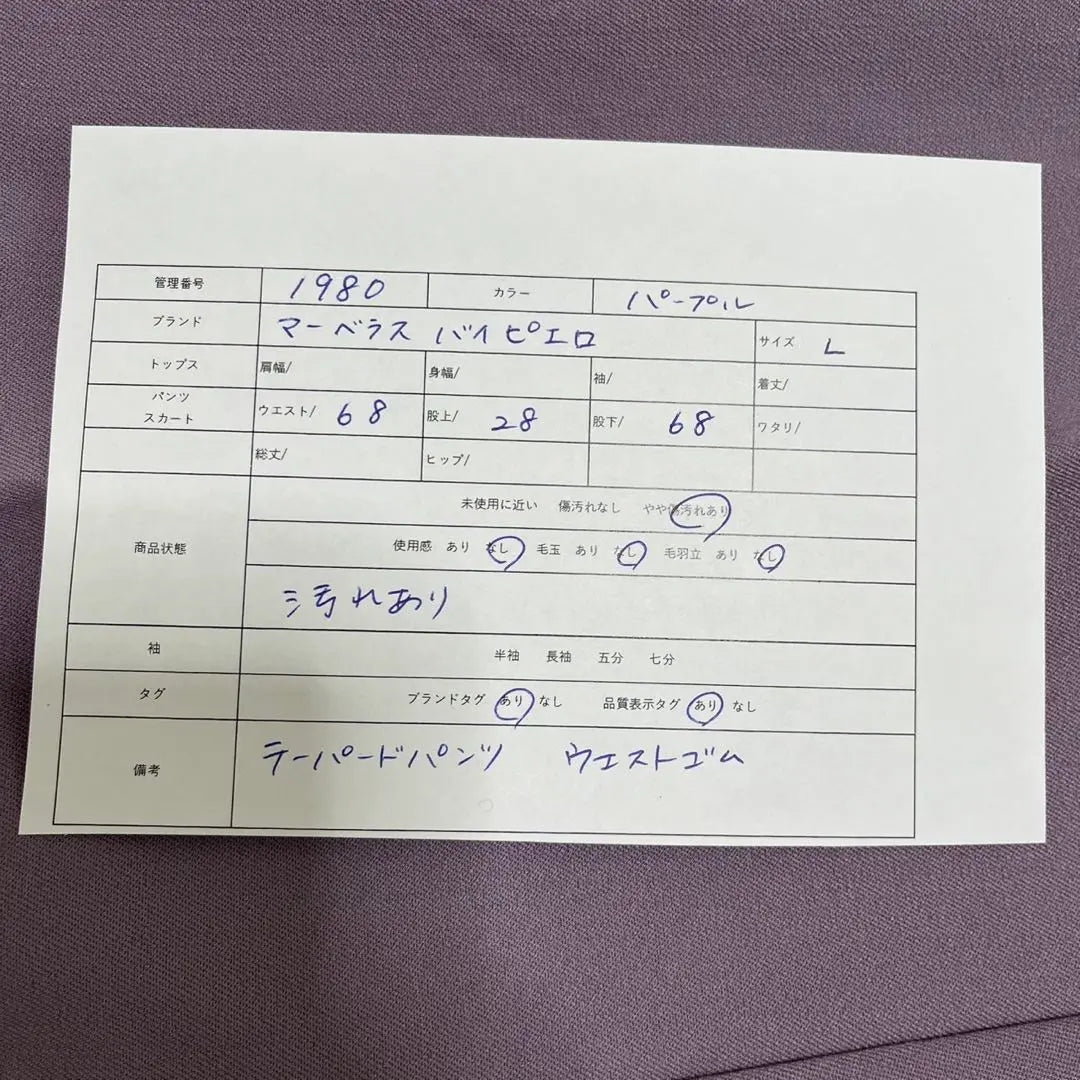 管理番号 1980 カラー パープル
ブランド マーベラス バイ ピエロ サイズ L
トップス 肩幅/ 身幅/ 袖/ 着丈/
パンツ
スカート ウエスト/ 68 股上/ 28 股下/ 68 ワタリ/
総丈/ ヒップ/
未使用に近い 傷汚れなし やや傷汚れあり
商品状態 使用感 あり なし 毛玉 あり なし 毛羽立 あり なし
汚れあり
袖 半袖 長袖 五分 七分
タグ ブランドタグ あり なし 品質表示タグ あり なし
備考 テーパードパンツ ウエストゴム